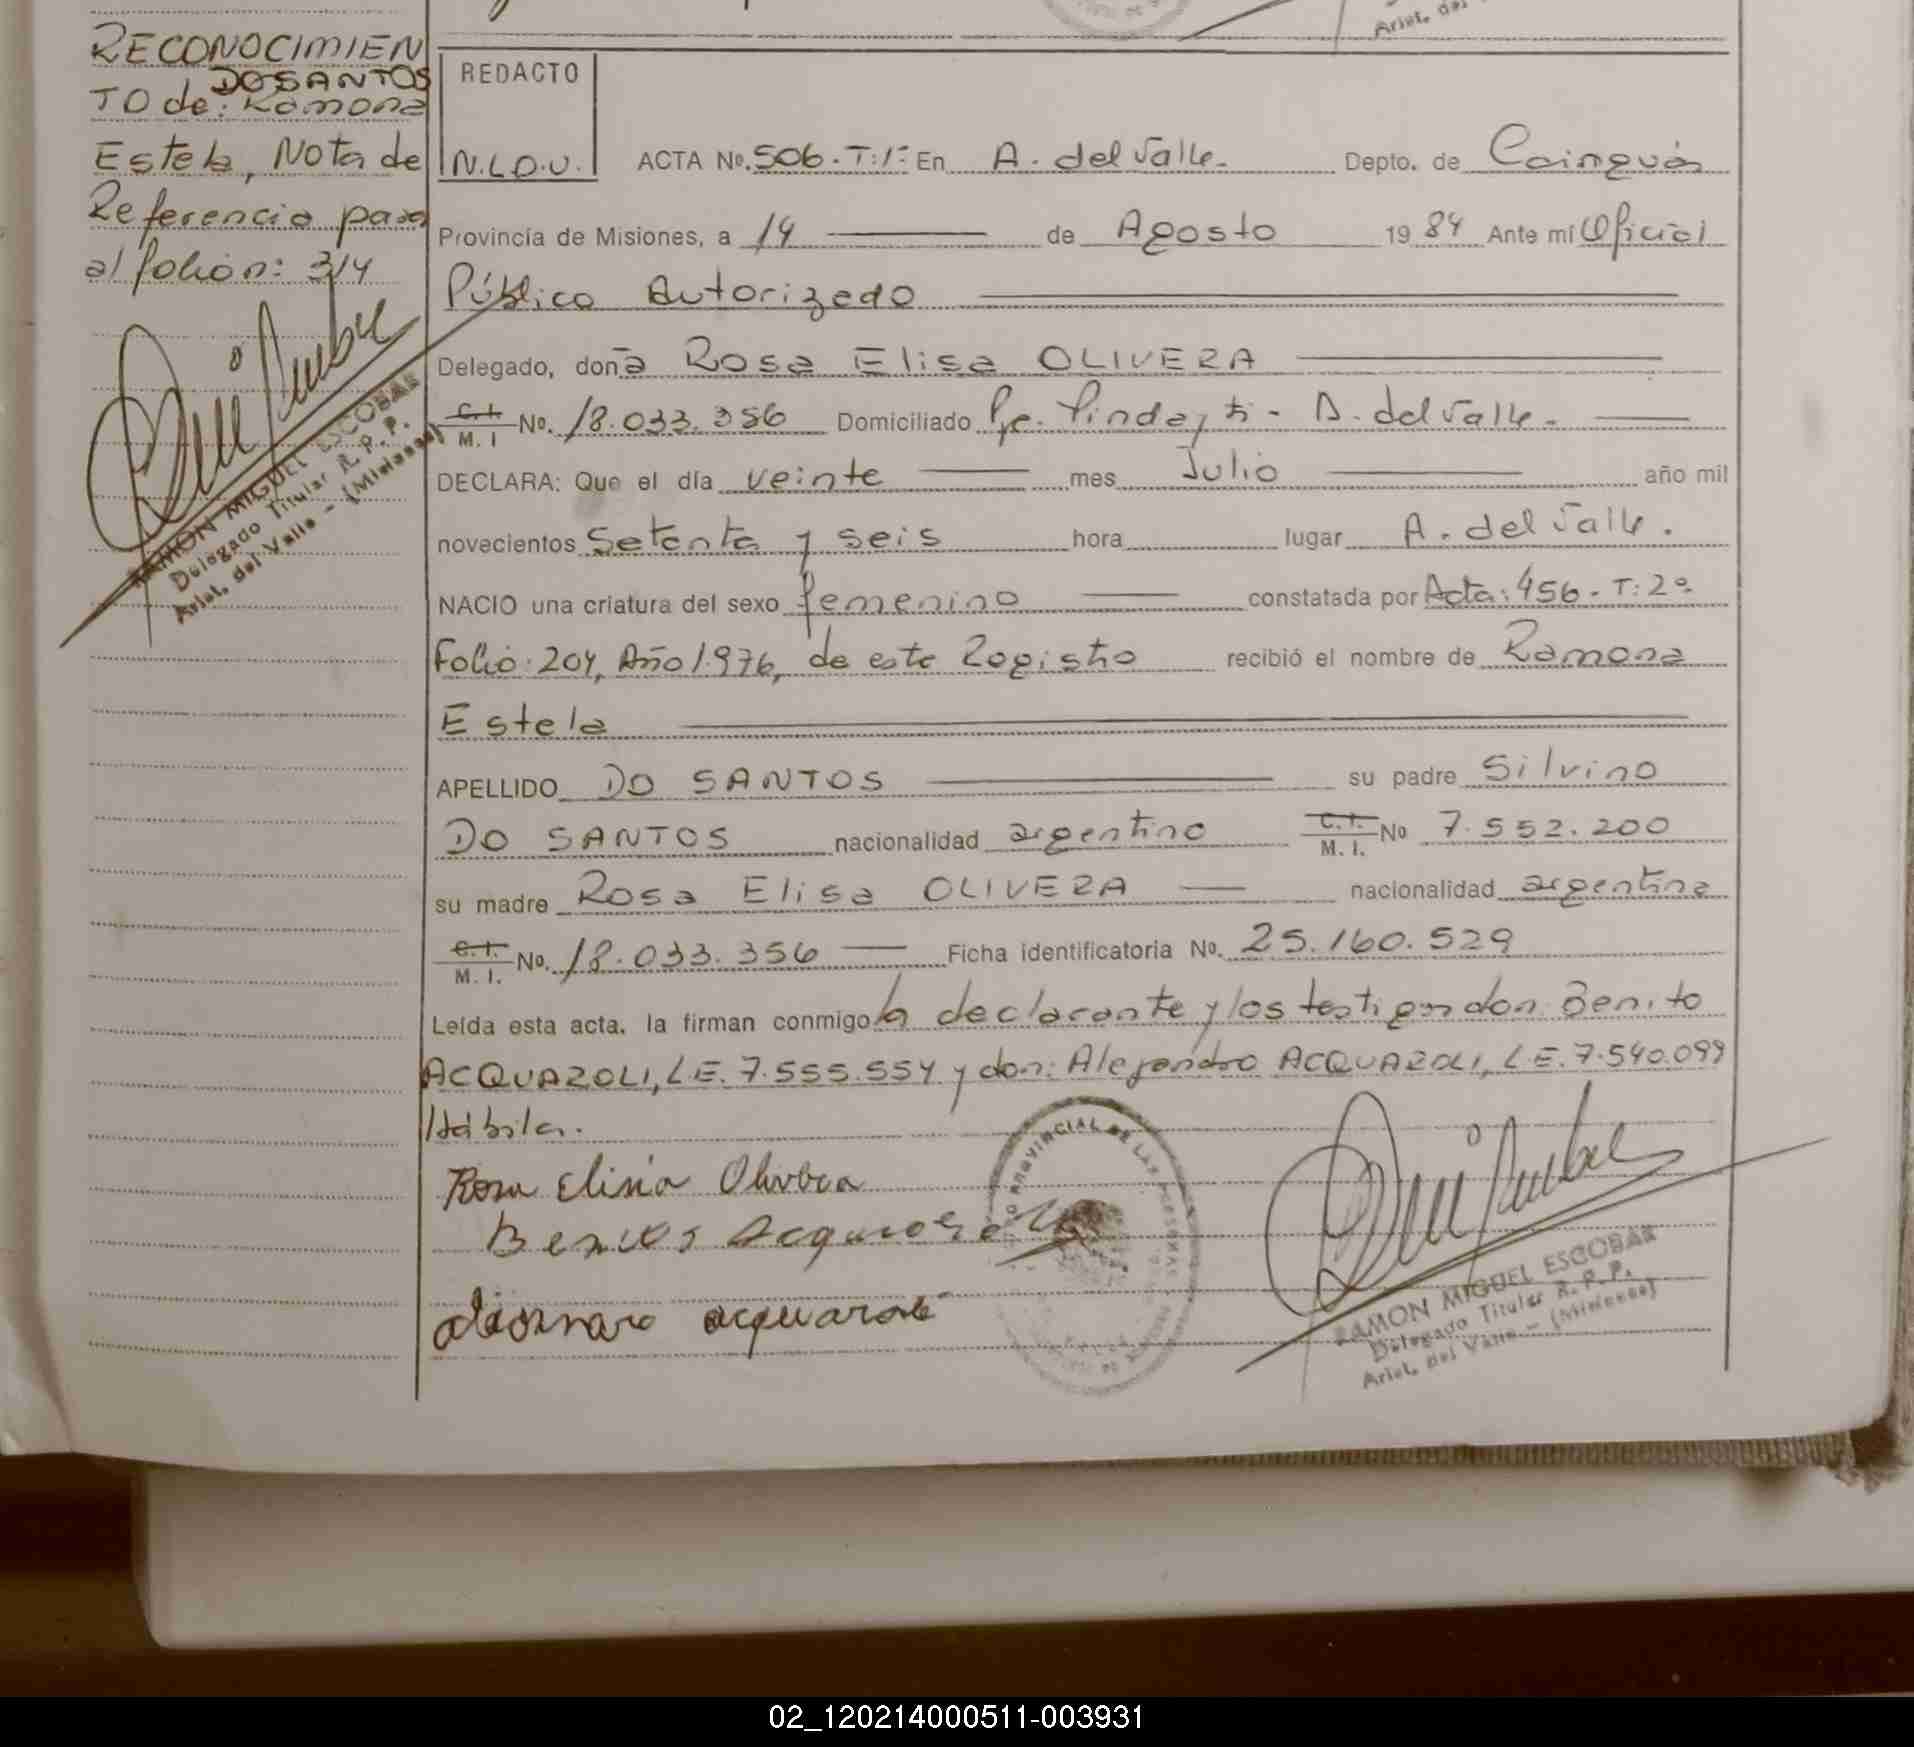 RECONOCIMIEN
DOSANTOS
TO de: Ramona
Estela, Nota de
Referencia pasa
al folio n: 314
RAMON MIGUEL ESCOBAR
Delegado Titular R.P.P.
Arist. del Valle - (Misiones)
Arist. del
REDACTO
N.L.D.V.
ACTA No. 506. T:1º En A. del Valle. Depto. de Cainguás
Provincia de Misiones, a 14 de Agosto 1984 Ante mí Oficial
Público Autorizado
Delegado, doña Rosa Elisa OLIVERA
C. I. M. I No. 18.033.356 Domiciliado Pje. Pindayti - A. del Valle.
DECLARA: Que el día veinte mes Julio año mil
novecientos Setenta y seis hora lugar A. del Valle.
NACIO una criatura del sexo femenino constatada por Acta: 456. T: 2º
Folio: 204, Año 1.976, de este Registro recibió el nombre de Ramona
Estela
APELLIDO DO SANTOS su padre Silvino
DO SANTOS nacionalidad argentino C. I. M. I. No 7.552.200
su madre Rosa Elisa OLIVERA nacionalidad argentina
C. I. M. I. No. 18.033.356 Ficha identificatoria No. 25.160.529
Leída esta acta, la firman conmigo la declarante y los testigos don: Benito
ACQUAROLI, L.E. 7.555.554 y don: Alejandro ACQUAROLI, L.E. 7.540.099
Hábiles.
Rosa Elisa Olivera
RAMON MIGUEL ESCOBAR
Delegado Titular R.P.P.
Arist. del Valle - (Misiones)
02_120214000511-003931